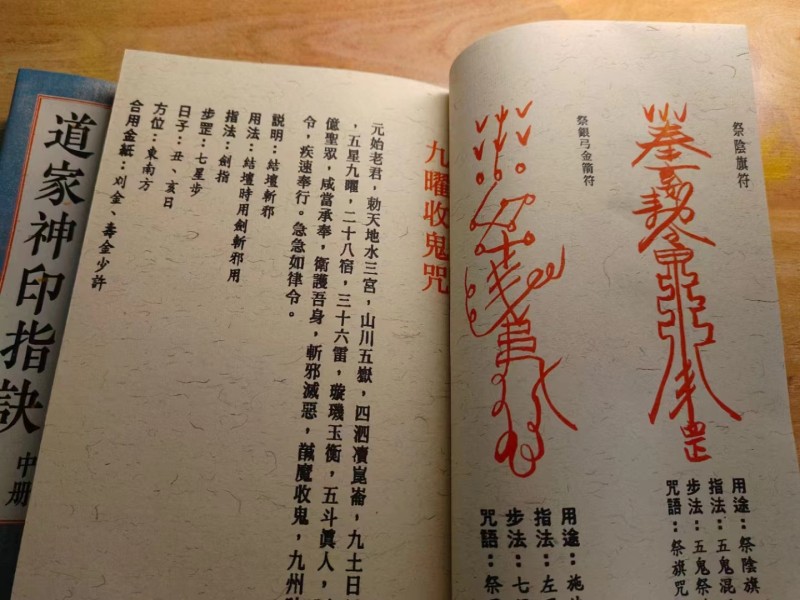 祭陰旗符
用途：祭陰旗
指法：五鬼混
步法：五鬼祭
咒語：祭旗咒
祭銀弓金箭符
用途：施
指法：左
步法：七
咒語：祭
九曜收鬼咒
元始老君，勅天地水三宮，山川五嶽，四泗瀆崑崙，九土日
，五星九曜，二十八宿，三十六雷，璇璣玉衡，五斗眞人，
億聖眾，咸當承奉，衛護吾身，斬邪滅惡，馘魔收鬼，九州
令，疾速奉行。急急如律令。
說明：結壇斬邪
用法：結壇時用劍斬邪用
指法：劍指
步罡：七星步
日子：丑、亥日
方位：東南方
合用金紙：刈金、壽金少許
道家神印指訣
中册